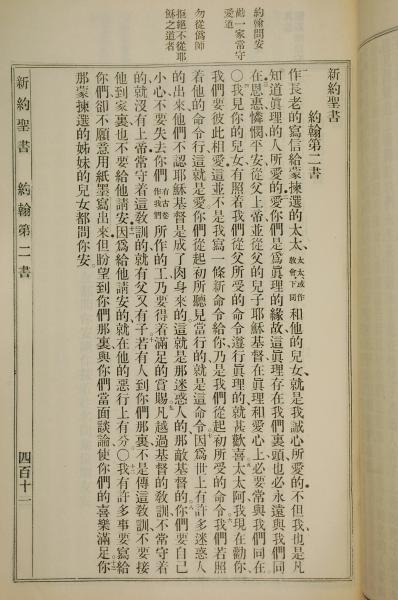 約翰問安
勸一家當守
愛道
勿從偽師
拒絕不從耶
穌之道者
新約聖書
約翰第二書
作長老的寫信給蒙揀選的太太、太太或作教會下同和他的兒女、就是我誠心所愛的不但我也是凡
知道眞理的人所愛的愛你們是爲眞理的緣故這眞理存在我們裏頭也必永遠與我們同
在恩惠憐憫平安從父上帝並從父的兒子耶穌基督在眞理和愛心上必要常與我們同在
〇我見你的兒女有照着我們從父所受的命令遵行眞理的就甚歡喜太太阿我現在勸你
我們要彼此相愛這並不是我寫一條新命令給你乃是我們從起初所受的命令我們若照
着他的命令行這就是愛你們從起初所聽見當行的就是這命令因爲世上有許多迷惑人
的出來他們不認耶穌基督是成了肉身來的這就是那迷惑人的那敵基督的你們要自己
小心不要失去你們有古卷作我們所作的工乃要得着滿足的賞賜凡越過基督的敎訓不常守着
的就沒有上帝常守着這敎訓的就有父又有子若有人到你們那裏不是傳這敎訓不要接
他到家裏也不要給他請安因爲給他請安的就在他的惡行上有分〇我有許多事要寫給
你們卻不願意用紙墨寫出來但盼望到你們那裏與你們當面談論使你們的喜樂滿足你
那蒙揀選的姊妹的兒女都問你安
新約聖書 約翰第二書 四百十一